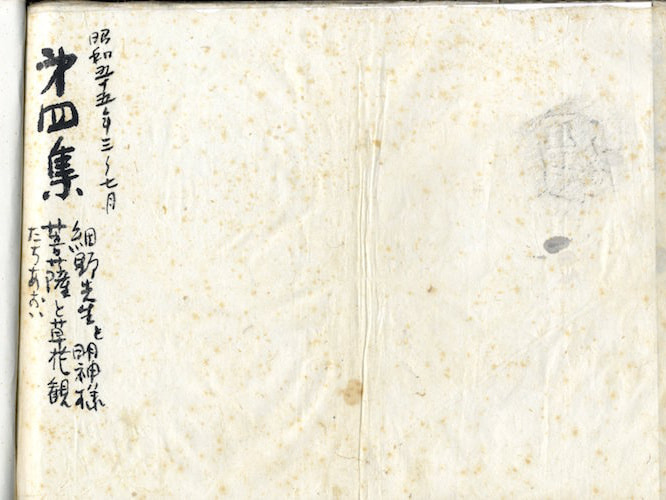 昭和五十五年三〜七月
第四集
細野先生と明神様
菩薩と草花観
たちあおい